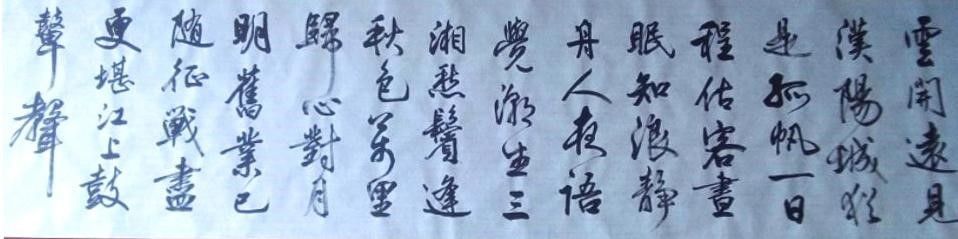 雲開遠見
漢陽城猶
是孤帆一日
程估客晝
眠知浪靜
舟人夜語
覺潮生三
湘愁鬢逢
秋色萬里
歸心對月
明舊業已
随征戰盡
更堪江上鼓
鼙聲